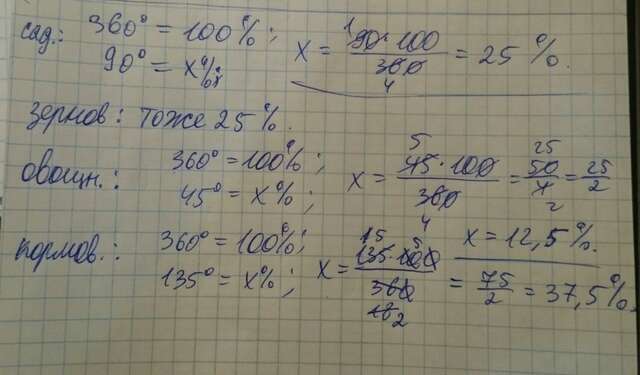 сад.: 360° = 100%; x = 90·100/360 = 25%.
90° = x%
зернов: тоже 25%.
овощн.: 360° = 100%; x = 45·100/360 = 50/4 = 25/2
45° = x%; x = 12,5%.
кормов.: 360° = 100%; x = 135·100/360 = 75/2 = 37,5%.
135° = x%;